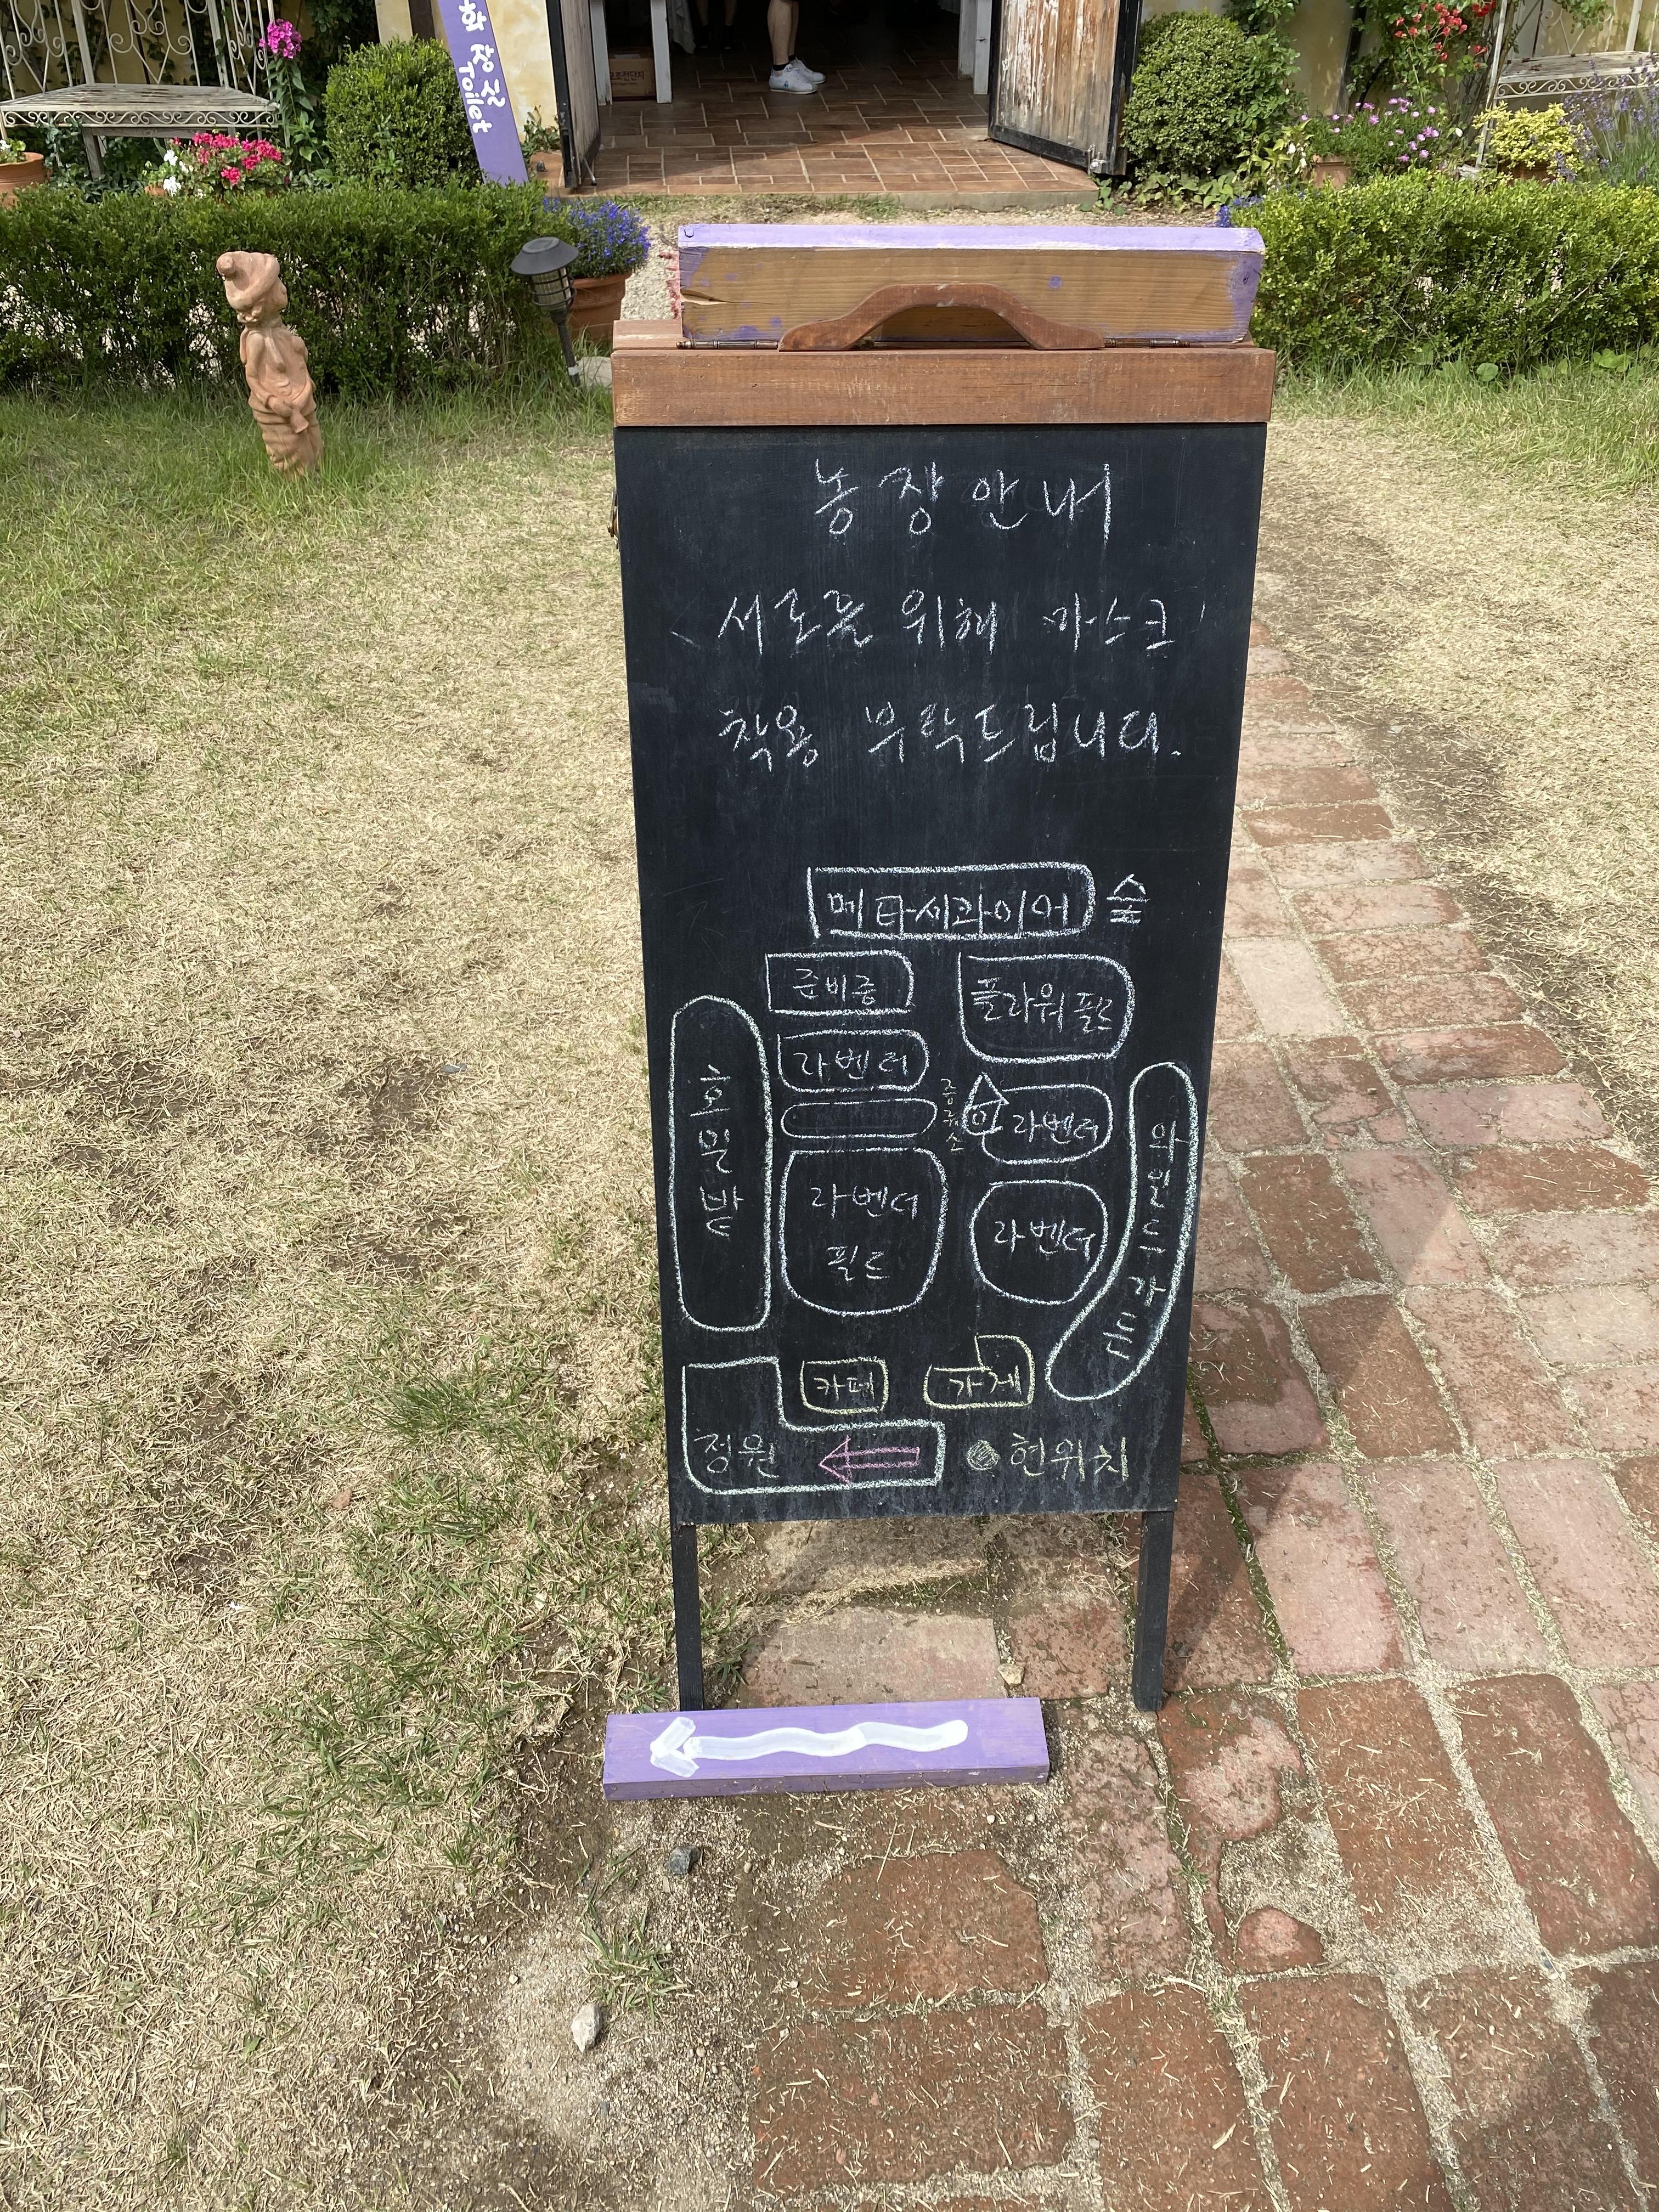 화장실
Toilet
농장안내
서로를 위해 마스크
착용 부락드립니다.
메타세콰이어 숲
준비중
플라워필드
라벤더
증류소
라벤더
호밀밭
라벤더
필드
라벤더
와인드가든
카페
가게
정원
현위치